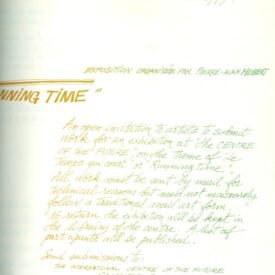 EXPOSITION ORGANISÉE PAR PIERRE-ALAIN HUBERT
NNING TIME"
An open invitation to artists to submit
work for an exhibition at the CENTRE
OF THE FUTURE, on the theme of 'le
temps qui court' or 'Running time'.
All work must be sent by mail for
technical reasons but need not necessarily
follow a traditional mail art form.
No return, the exhibition will be kept in
the library of the centre. A list of
participants will be published.
Send submissions to:
THE INTERNATIONAL CENTRE OF THE FUTURE